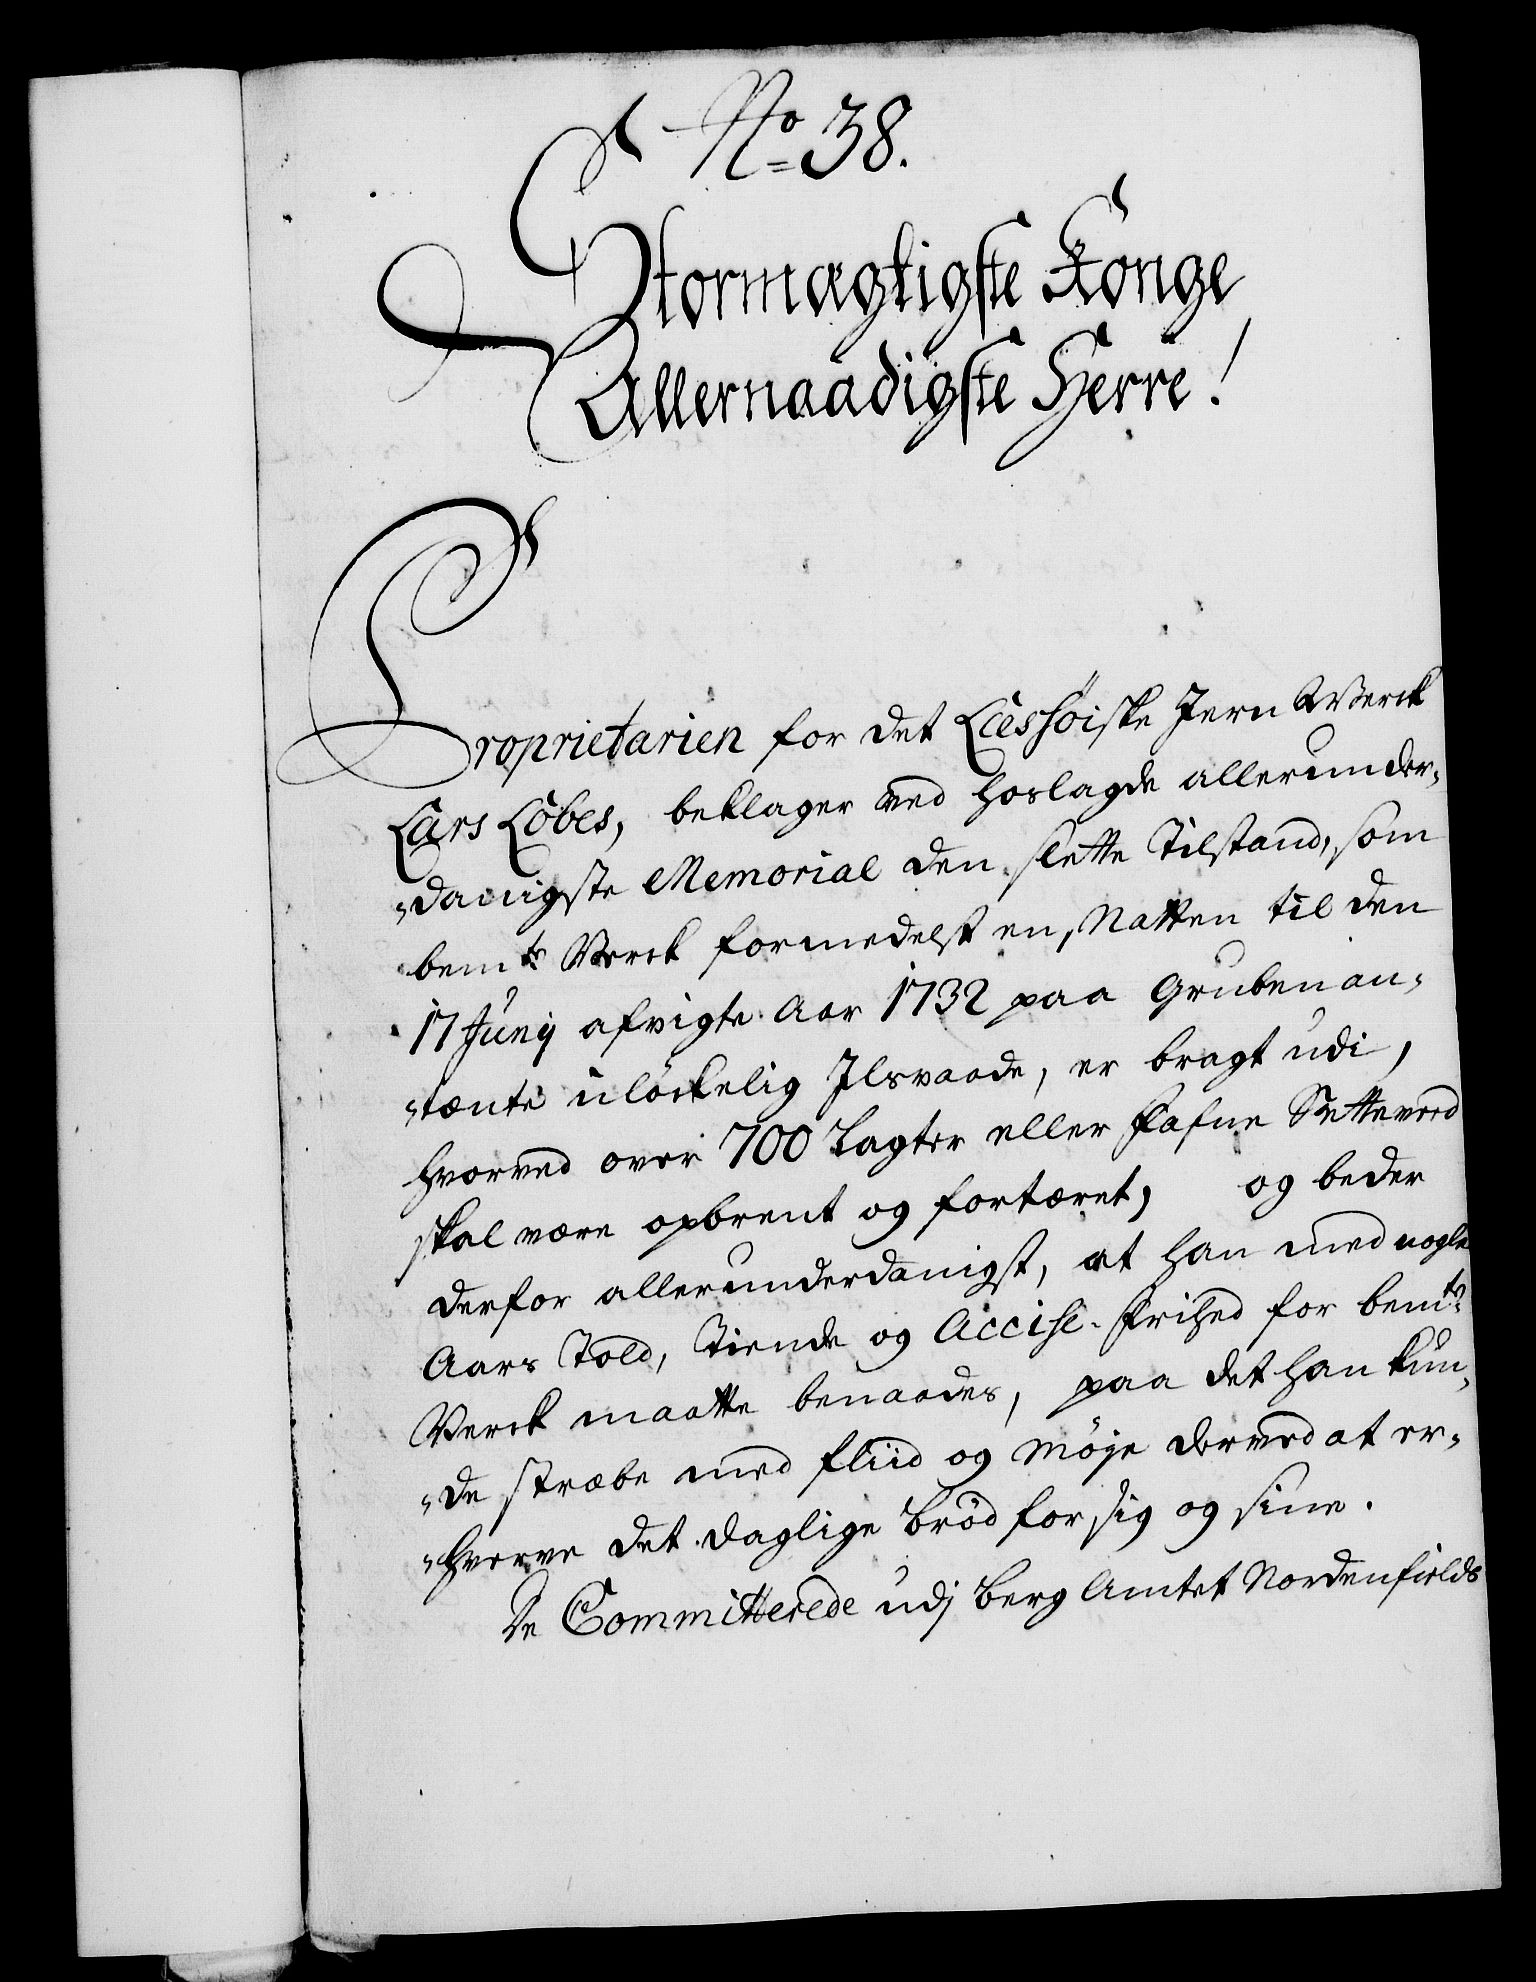 No 38.
Stormægtigste Konge
Allernaadigste Herre!
Proprietarien for det Læssöiske Jern Werck
Lars Löbes, beklager ved hoslagde allerunder,
„danigste Memorial den slette Tilstand, som
bemte Werck formedelst en, Natten til den
17 Junij afvigte Aar 1732 paa Gruben an,
„tænte ulöckelig Ilsvaade, er bragt udi,
hvorved over 700 Lagter eller Fafne Setteveed
skal være opbrent og fortæret, og beder
derfor allerunderdanigst, at han med nogle
Aars Told, Tiende og Accise-frihed for bemte
Werck maatte benaades, paa det han kun,
„de stræbe med fliid og Möje derved at er,
„hverve det daglige Bröd for sig og sine.
De Committerede udj Berg Amtet Nordenfields